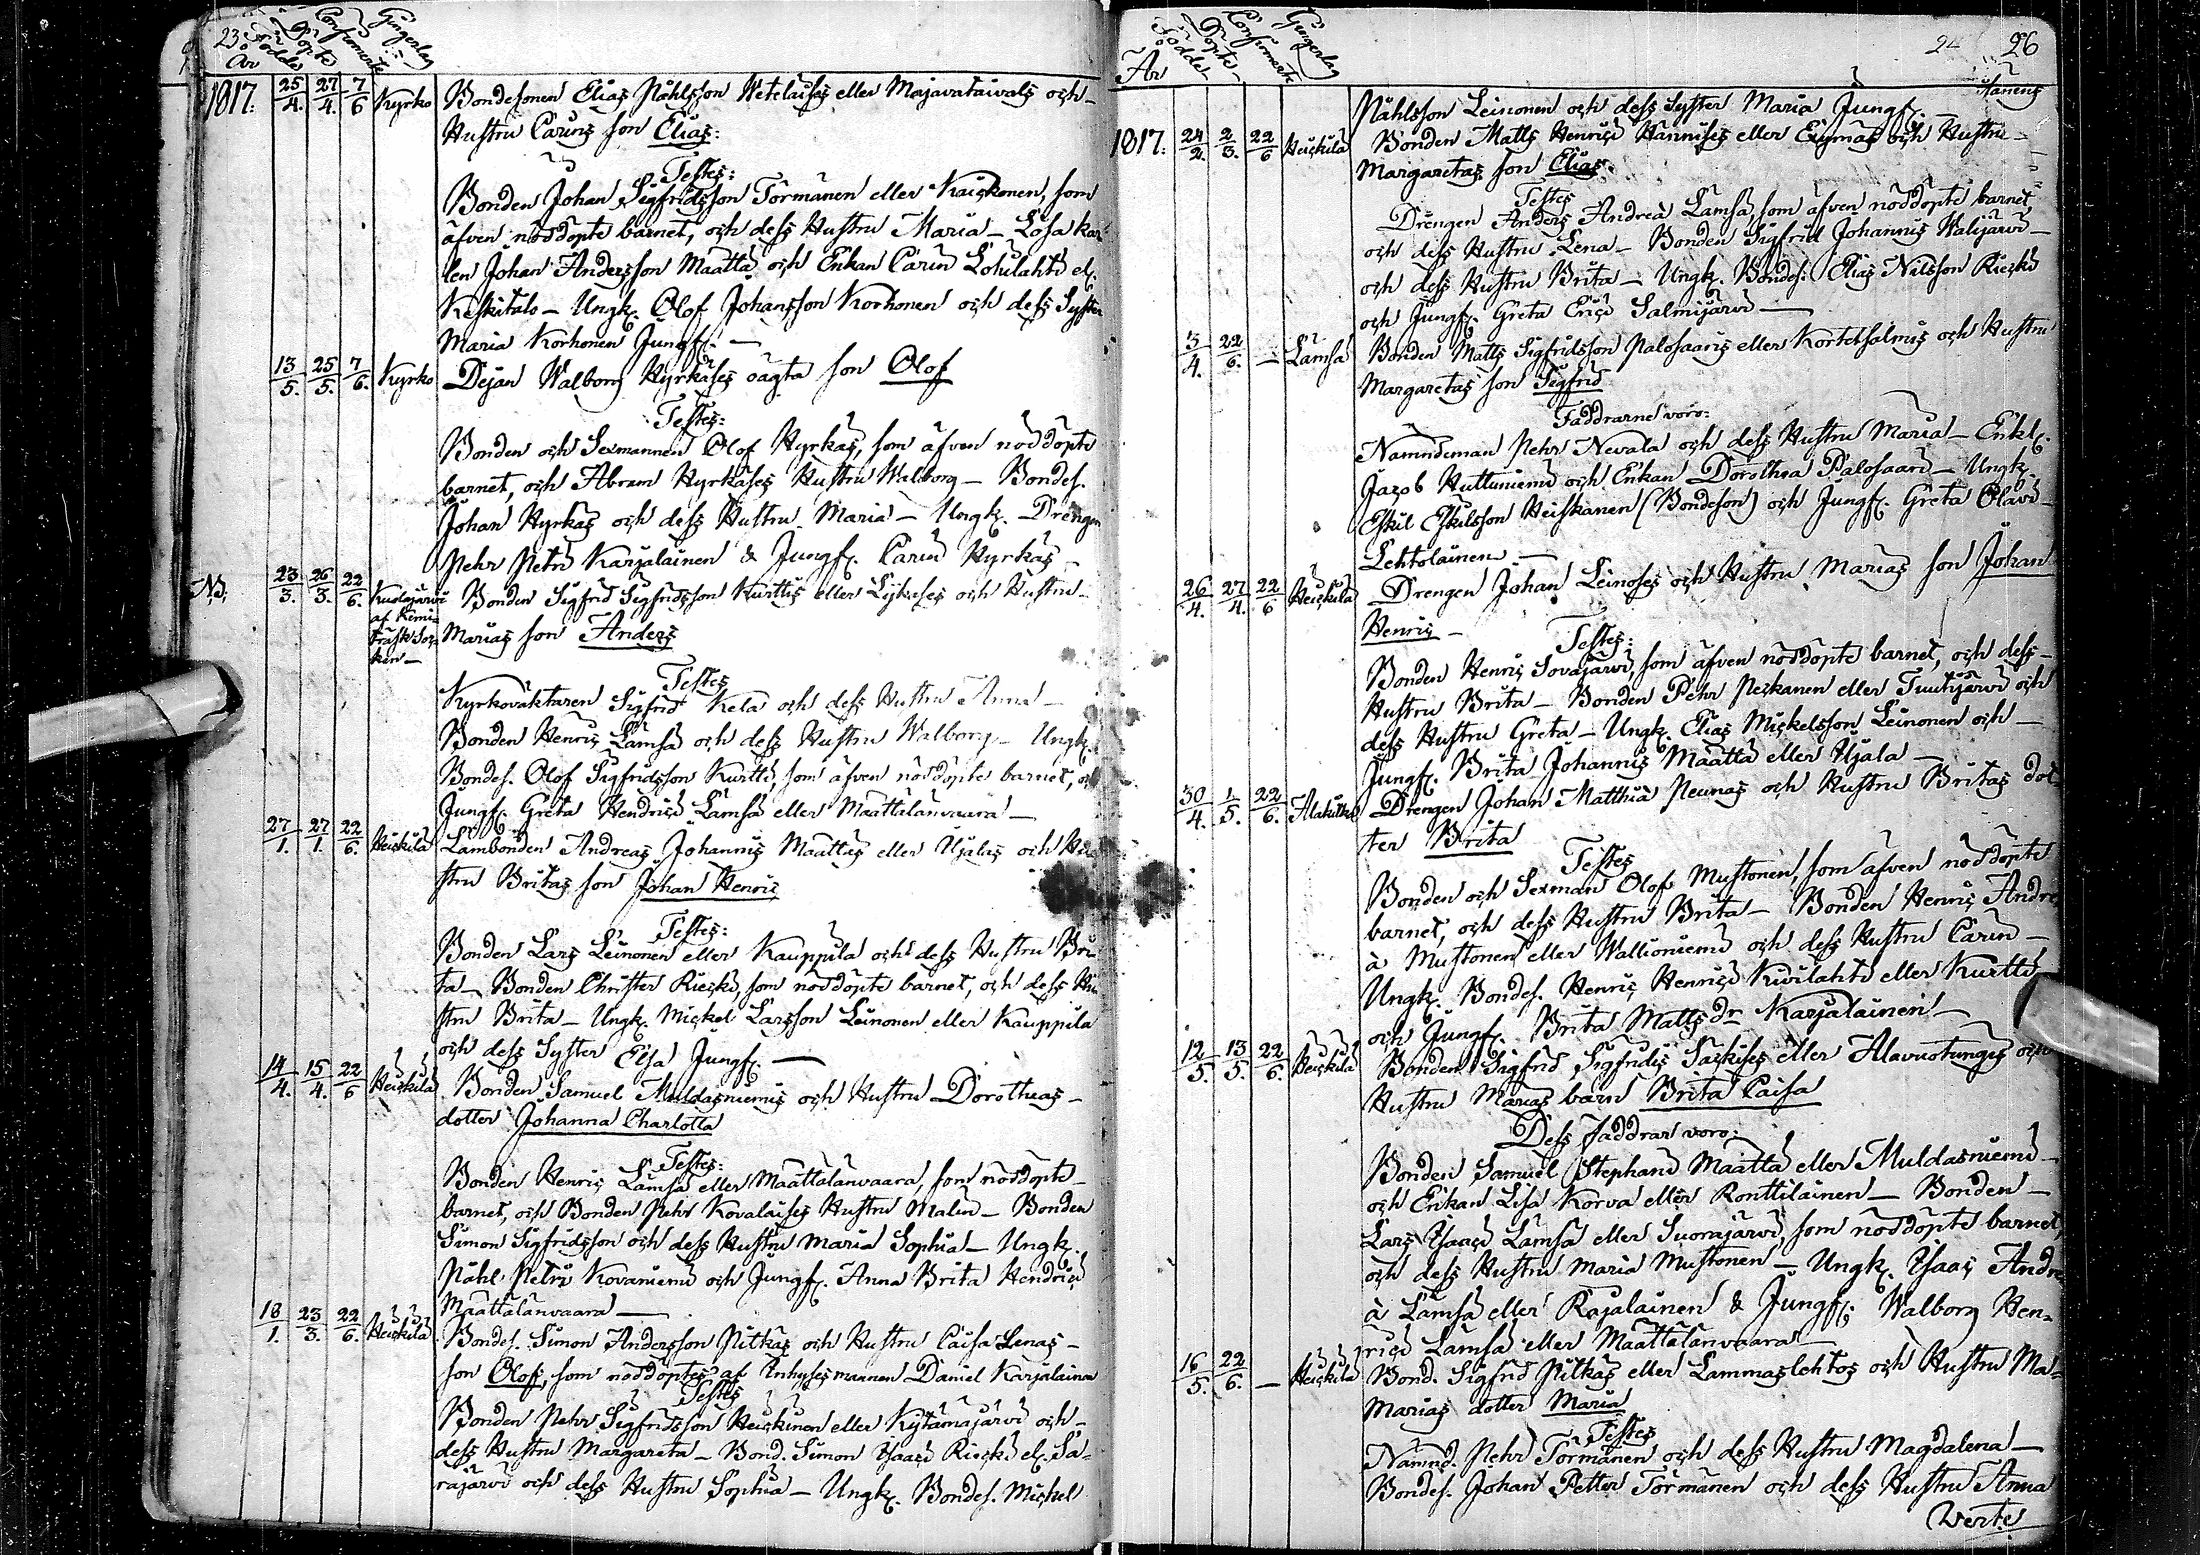 23.
År Födde Döpte Confirmerte Gingerlag
1817. 25/4. 27/4. 7/6 Kyrko Bondesonen Elias Påhlsson Wetelaises eller Majavataivals och
Hustru Carins son Elias:
Testes:
Bonden Johan Sigfridsson Törmänen eller Kaiskonen, som
äfven nöddöpte barnet, och dess Hustru Maria – Lösa kar
len Johan Andersson Määttä och Enkan Carin Lohulahti el.
Keskitalo – Ungk. Olof Johansson Korhonen och dess Syster
Maria Korhonen Jungf. –
13/5. 25/5. 7/6. Kyrko Dejan Walborg Hyrkäses oägta son Olof
Testes:
Bonden och Sexmannen Olof Hyrkäs, som äfven nöddöpte
barnet, och Abram Hyrkäses Hustru Walborg – Bondes.
Johan Hyrkäs och dess Hustru Maria – Ungk. Drengen
Pehr Petri Karjalainen & Jungf. Carin Hyrkäs –
NB. 23/3. 26/3. 22/6. Kuolajärvi Bonden Sigfrid Sigfridsson Kurttis eller och Hustru
af Kemi-
träsk Soc-
ken – Marias son Anders
Testes
Kyrkoväktaren Sigfrid Kela och dess Hustru Anna –
Bonden Henric Lämsä och dess Hustru Walborg – Ungk.
Bondes. Olof Sigfridsson Kurtti, som äfven nöddöpte barnet, och
Jungf. Greta Hendrici Lämsä eller Määttälänvaara –
27/1. 27/1. 22/6. Heickilä Lambonden Andreas Johannis Määttäs eller Ujalas och Hu
stru Britas son Johan Henric
Testes:
Bonden Lars Leinonen eller Kauppila och dess Hustru Bri
ta – Bonden Christer Riecki, som nöddöpte barnet, och dess Hu
stru Brita – Ungk. Mickel Larsson Leinonen eller Kauppila
och dess Syster Elsa Jungf. –
14/4. 15/4. 22/6 Heickilä Bonden Samuel Muldasniemis och Hustru Dorotheas –
dotter Johanna Charlotta
Testes:
Bonden Henric Lämsä eller Määttälänvaara, som nöddöpte –
barnet, och Bonden Pehr Kovalaises Hustru Malin – Bonden
Simon Sigfridsson och dess Hustru Maria Sophia – Ungk.
Påhl Petri Kovaniemi och Jungf. Anna Brita Hendrici
Määttälänvaara –
18/1. 23/3. 22/6. Heickilä Bondes. Simon Andersson Pitkäs och Hustru Caisa Lenas –
son Olof, som nöddöptes af Inhysesmannen Daniel Karjalaine
Testes
Bonden Pehr Sigfridsson Heickinen eller Kytämäjärvi och –
dess Hustru Margareta – Bond. Simon Isaaci Riecki el. Sä-
räjärvi och dess Hustru Sophia – Ungk. Bondes. Michel
24 26
År Födde Döpte Confirmerte Gingerlag
Påhlsson Leinonen och dess Syster Maria Jungf.
1817. 24/2. 2/3. 22/6 Heickilä Bonden Matts Henrici Hännises eller och Hustru –
Margaretas son Elias.
Testes
Drengen Anders Andreä Lämsä, som äfven nöddöpte barnet
och dess Hustru Lena – Bonden Sigfrid Johannis Walijärvi –
och dess Hustru Brita – Ungk. Bondes. Elias Nilsson Riecki
och Jungf. Greta Erici Salmijärvi –
3/4. 22/6. – Lämsä Bonden Matts Sigfridsson Palosaaris eller Kortetsalmis och Hustru
Margaretas son Sigfrid
Faddrarne voro:
Nämndeman Pehr Nevala och dess Hustru Maria – Enkl.
Jacob Huttuniemi och Enkan Dorothea Palosaari – Ungk.
Eskil Eskilsson Heiskanen (Bondeson) och Jungf. Greta Olavi –
Lehtolainen –
26/4. 27/4. 22/6 Heickilä Drengen Johan Leinoses och Hustru Marias son Johan
Henric –
Testes:
Bonden Henric Sovajärvi, som äfven nöddöpte barnet, och dess –
Hustru Brita – Bonden Pehr Peskanen eller Tuuhijärvi och
dess Hustru Greta – Ungk. Elias Mickelsson Leinonen och –
Jungf. Brita Johannis Määttä eller Ujala –
30/4. 1/5. 22/6. Alakitka Drengen Johan Matthiä Neunas och Hustru Britas dot
ter Brita
Testes
Bonden och Sexman Olof Mustonen, som äfven nöddöpte
barnet, och dess Hustru Brita – Bonden Henric Andre
ä Mustonen eller Wallioniemi och dess Hustru Carin –
Ungk. Bondes. Henric Henrici Kivilahti eller Kurtti
och Jungf. Brita Mattsdr Karjalainen –
12/5. 13/5. 22/6. Heickilä Bonden Sigfrid Sigfridis Säckises eller Alavuotungis och
Hustru Marias barn Brita Caisa
Dess Faddrar voro:
Bonden Samuel Stephani Määttä eller Muldasniemi –
och Enkan Lisa Korva eller Ronttilainen – Bonden –
Lars Isaaci Lämsä eller Suorajärvi, som nöddöpte barnet,
och dess Hustru Maria Mustonen – Ungk. Isaac Andre
ä Lämsä eller Rajalainen & Jungf. Walborg Hen-
rici Lämsä eller Määttälänvaara –
16/5. 22/6. – Heickilä Bond. Sigfrid Pitkäs eller Lammaslehtos och Hustru Ma-
Marias dotter Maria
Testes
Nämnd. Pehr Törmänen och dess Hustru Magdalena –
Bondes. Johan Petter Törmänen och dess Hustru Anna
Verte